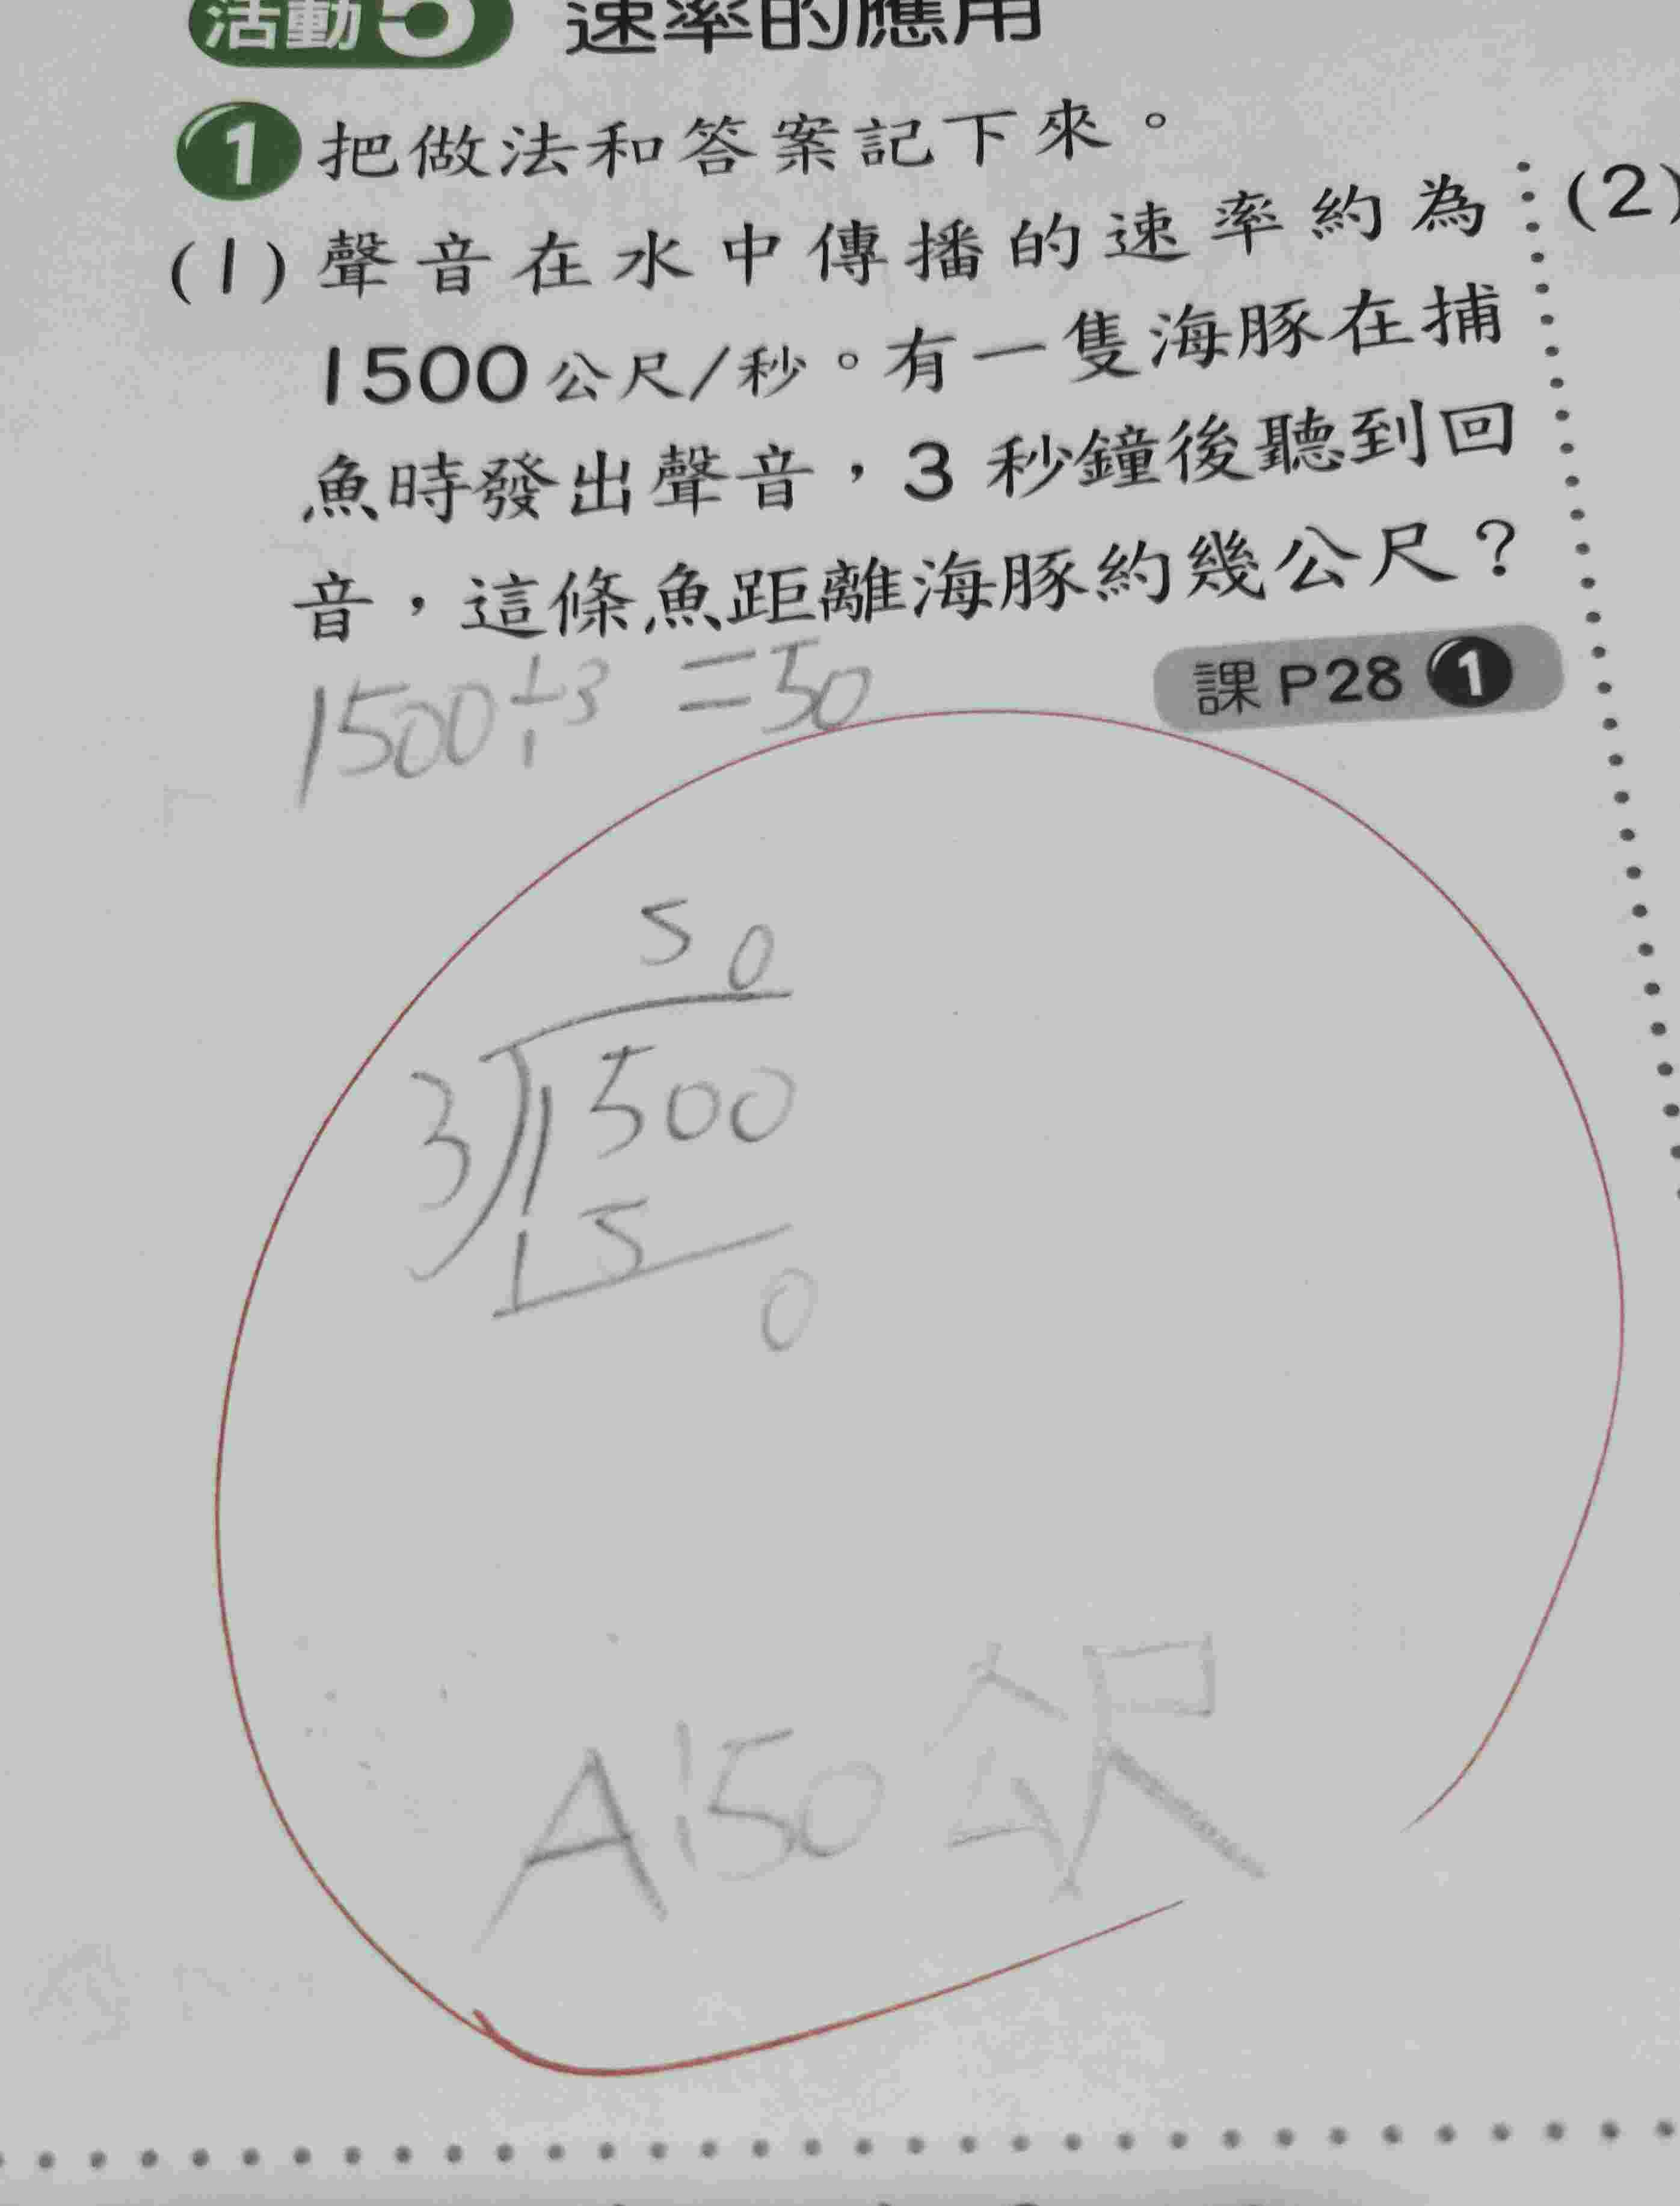 活動5 速率的應用
1 把做法和答案記下來。
(1) 聲音在水中傳播的速率約為
1500公尺/秒。有一隻海豚在捕
魚時發出聲音，3 秒鐘後聽到回
音，這條魚距離海豚約幾公尺？
課 P28 1
(2)
1500÷3=50
50
3)1500
15
0
A:50公尺